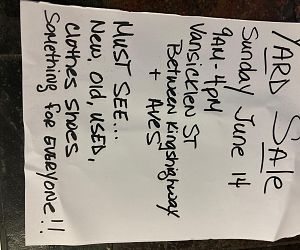 YARD SALE
Sunday June 14
9AM-4PM
Vansicklen ST
Between Kingshighway
+
Aves
MUST SEE...
New, old, USED,
Clothes Shoes
Something for EVERYONE!!